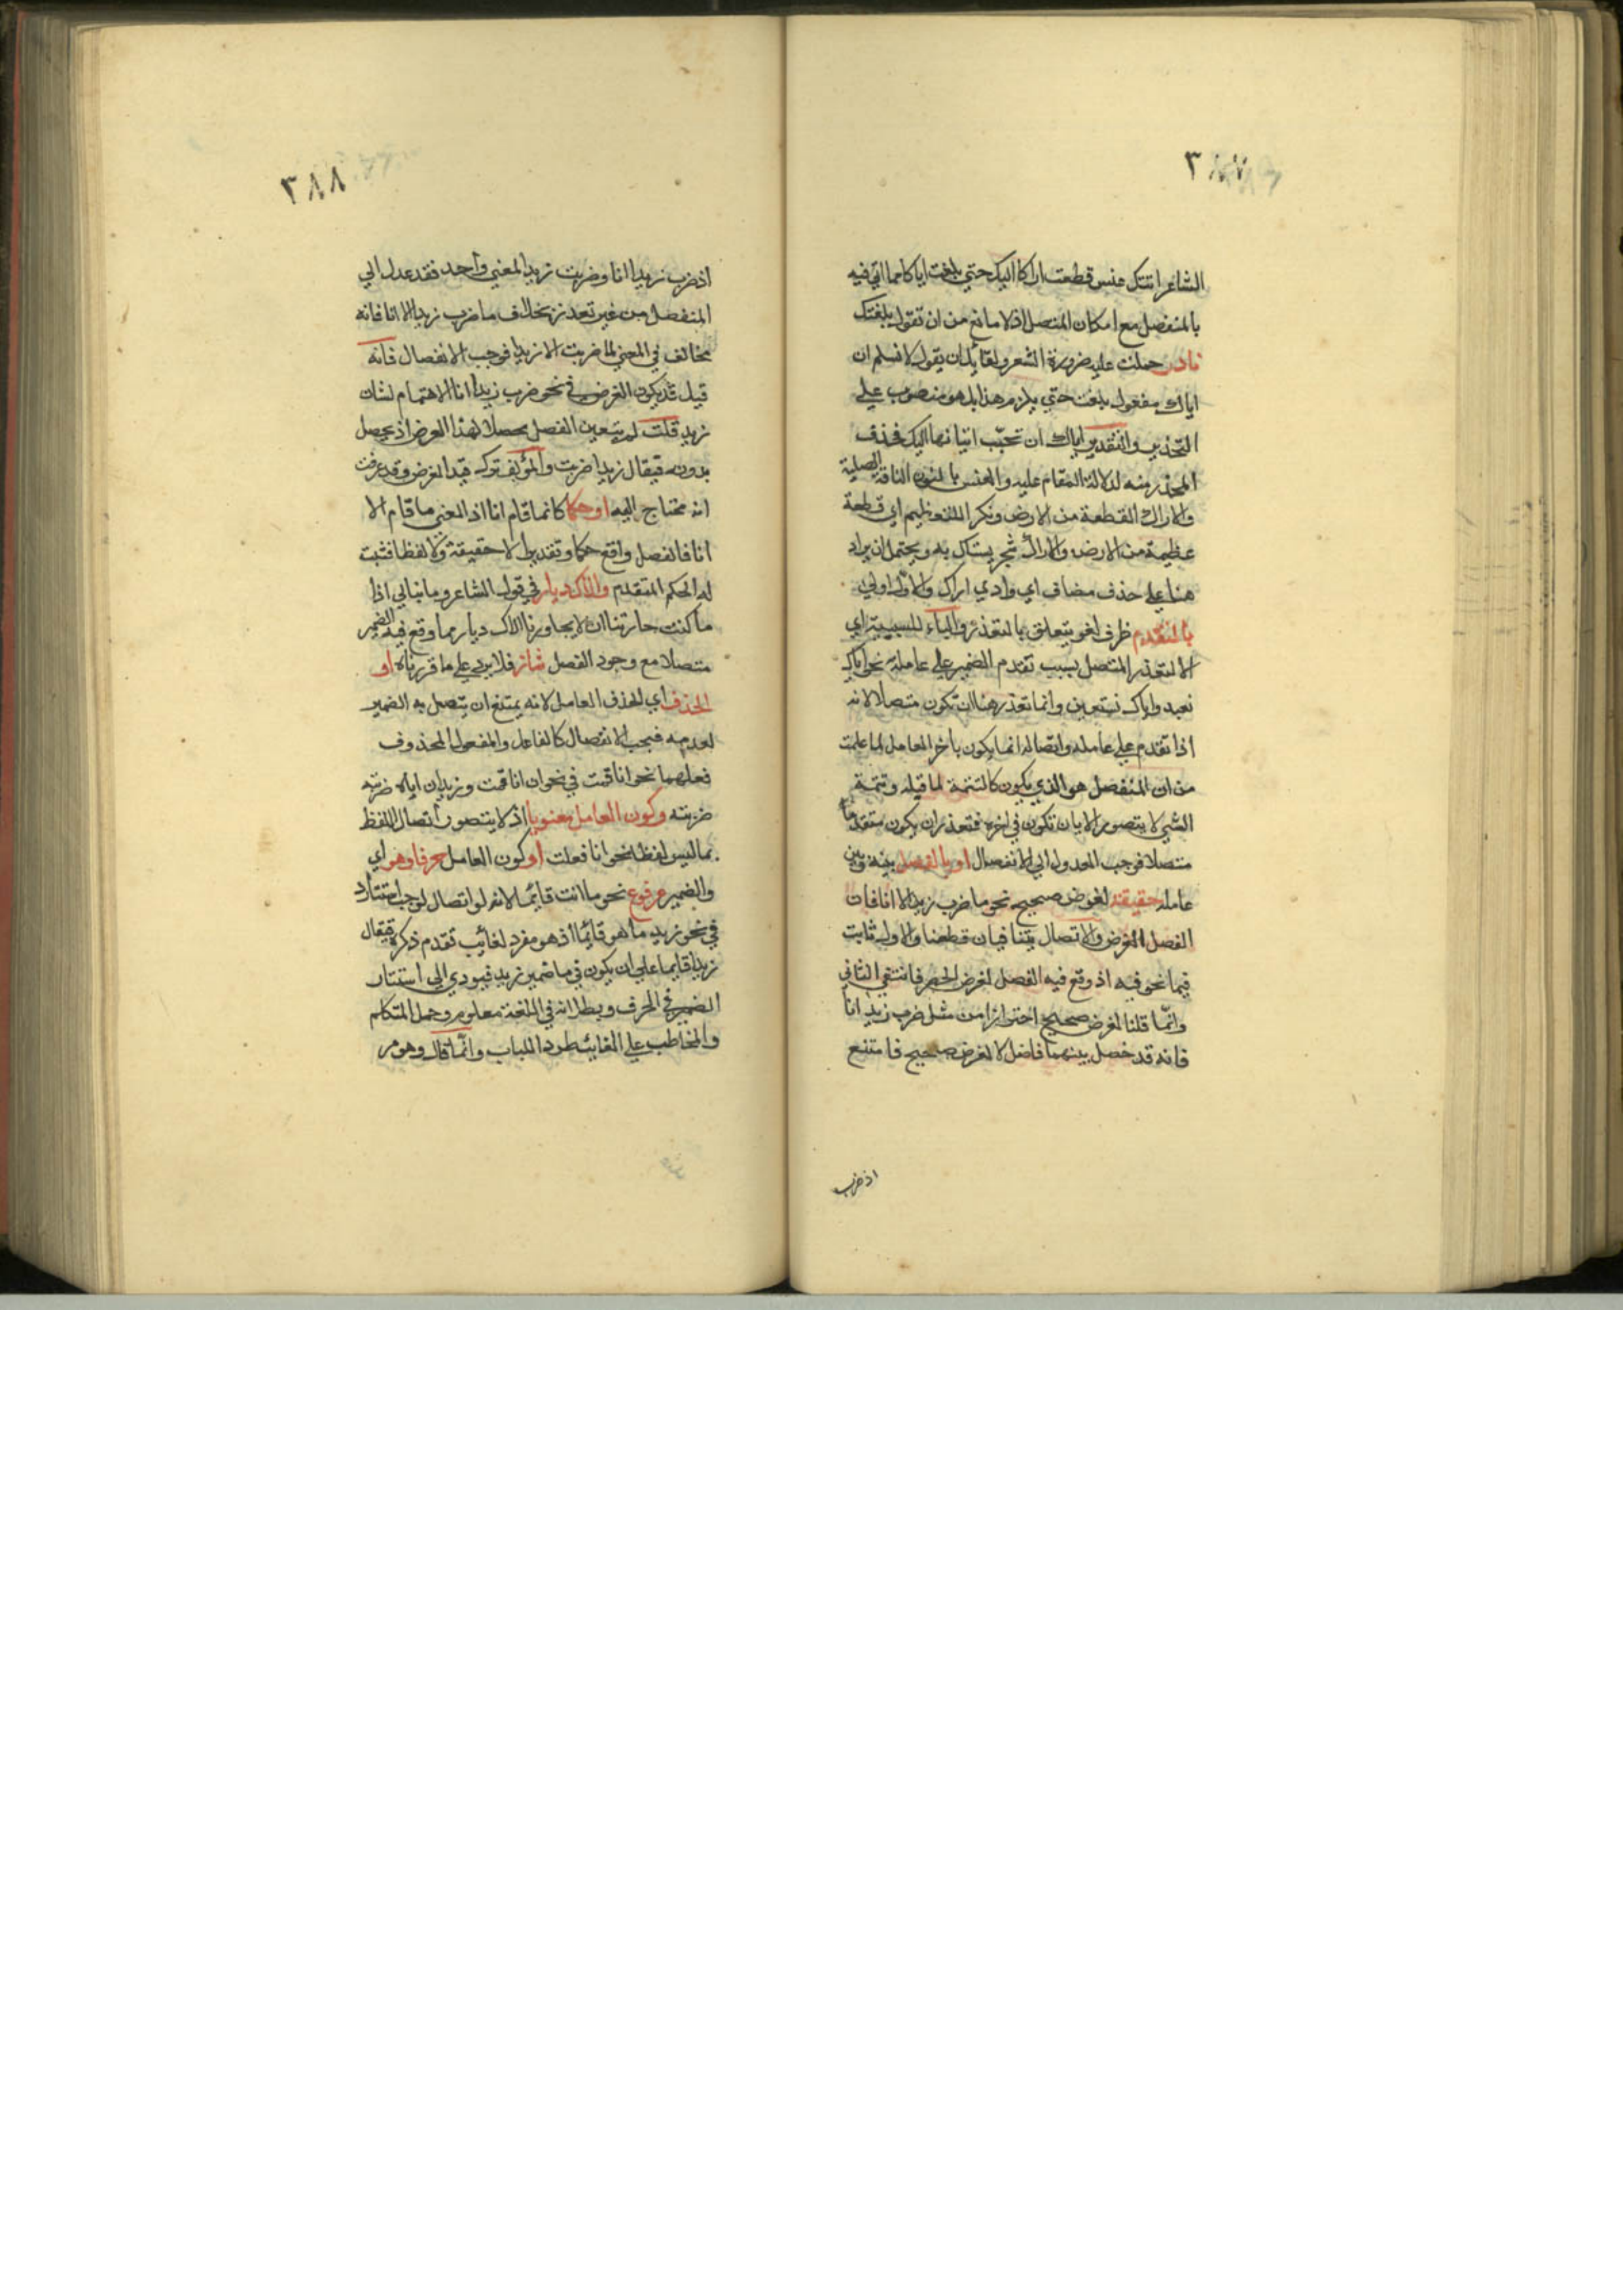 ٣٨٧
الشاعر اتتك عنس قطعت اراكا اليك حتي بلغت اياكا مما اتي فيه
بالمنفصل مع امكان المتصل اذ لا مانع من ان تقول بلغتك
نادر حملت عليه ضرورة الشعر ولقائل ان يقول لا نسلم ان
اياك مفعول بلغت حتي يلزم هذا بل هو منصوب علي
التحذير والتقدير اياك ان تحجب اتيانها اليك فحذف
المحذر منه لدلالة المقام عليه والعنس بالنون الناقة الصلبة
والاراك القطعة من الارض ونكر للتعظيم اي قطعة
عظيمة من الارض والاراك شجر يستاك به ويحتمل ان يراد
هنا علي حذف مضاف اي وادي اراك والاول اولي
بالتقدم ظرف لغو يتعلق بالتعذر والباء للسببية اي
الا لتعذر المتصل بسبب تقدم الضمير علي عامله نحو اياك
نعبد واياك نستعين وانما تعذر هنا ان تكون متصلا لانه
اذا تقدم علي عامله واتصاله انما يكون بآخر العامل لما علمت
من ان المنفصل هو الذي يكون كالتتمة لما قبله وتتمة
الشي لا يتصور الا بان تكون في اخره فتعذر ان يكون متقدما
متصلا فوجب العدول الي الانفصال او بالفصل بينه وبين
عامله حقيقة لغرض صحيح نحو ما ضرب زيدا الا انا فان
الفصل لغرض والاتصال يتنافيان قطعنا والاول ثابت
فيما نحو فيه اذ وقع فيه الفصل لغرض الحصر فانتفي الثاني
وانما قلنا لغرض صحيح احترازا من مثل ضرب زيد انا
فانه قد حصل بينهما فاصل لا لغرض صحيح فامتنع
اذ ضرب
٣٨٨
اذ ضرب زيدا انا وضربت زيدا لمعني واحد فقد عدل الي
المنفصل من غير تعذر بخلاف ما ضرب زيدا الا انا فانه
يخالف في المعني لما ضربت الا زيدا فوجب الانفصال فانه
قيل قد يكون الغرض في نحو ضرب زيدا انا الاهتمام لشان
زيد قلت لم يتعين الفصل محصلا لهذا الغرض اذ يحصل
بدونه فيقال زيدا ضربت والمؤلف ترك قيد الغرض وقد عرفت
انه محتاج اليه او حكما كانما قام انا اذ المعني ما قام الا
انا فالفصل واقع حكما وتقديرا لا حقيقة ولا لفظا فثبت
له الحكم المتقدم والاك ديار في قول الشاعر وما نبالي اذا
ما كنت جارتنا ان لا يجاورنا الاك ديار مما وقع فيه الضمير
متصلا مع وجود الفصل شاذ فلا يرد علي ما قررناه او
الحذف اي لحذف العامل لانه يمتنع ان يتصل به الضمير
لعدمه فيجب الانفصال كالفاعل والمفعول المحذوف
فعلهما نحو انا قمت في نحو ان انا قمت وزيد ان اياه ضربته
ضربته وكون العامل معنويا اذ لا يتصور اتصال اللفظ
بما ليس لفظا نحو انا فعلت او كون العامل حرفا وهو اي
والضمير مرفوع نحو ما انت قائما لانه لو اتصال لوجب استتاره
في نحو زيد ما هو قائما اذ هو مفرد لغائب تقدم ذكره فيقال
زيد ما قايما علي ان يكون في ما ضمير زيد فيودي الي استتار
الضمير في الحرف وبطلانه في اللغة معلوم وحمل المتكلم
والمخاطب علي الغائب طرد للباب وانما قال وهو مر